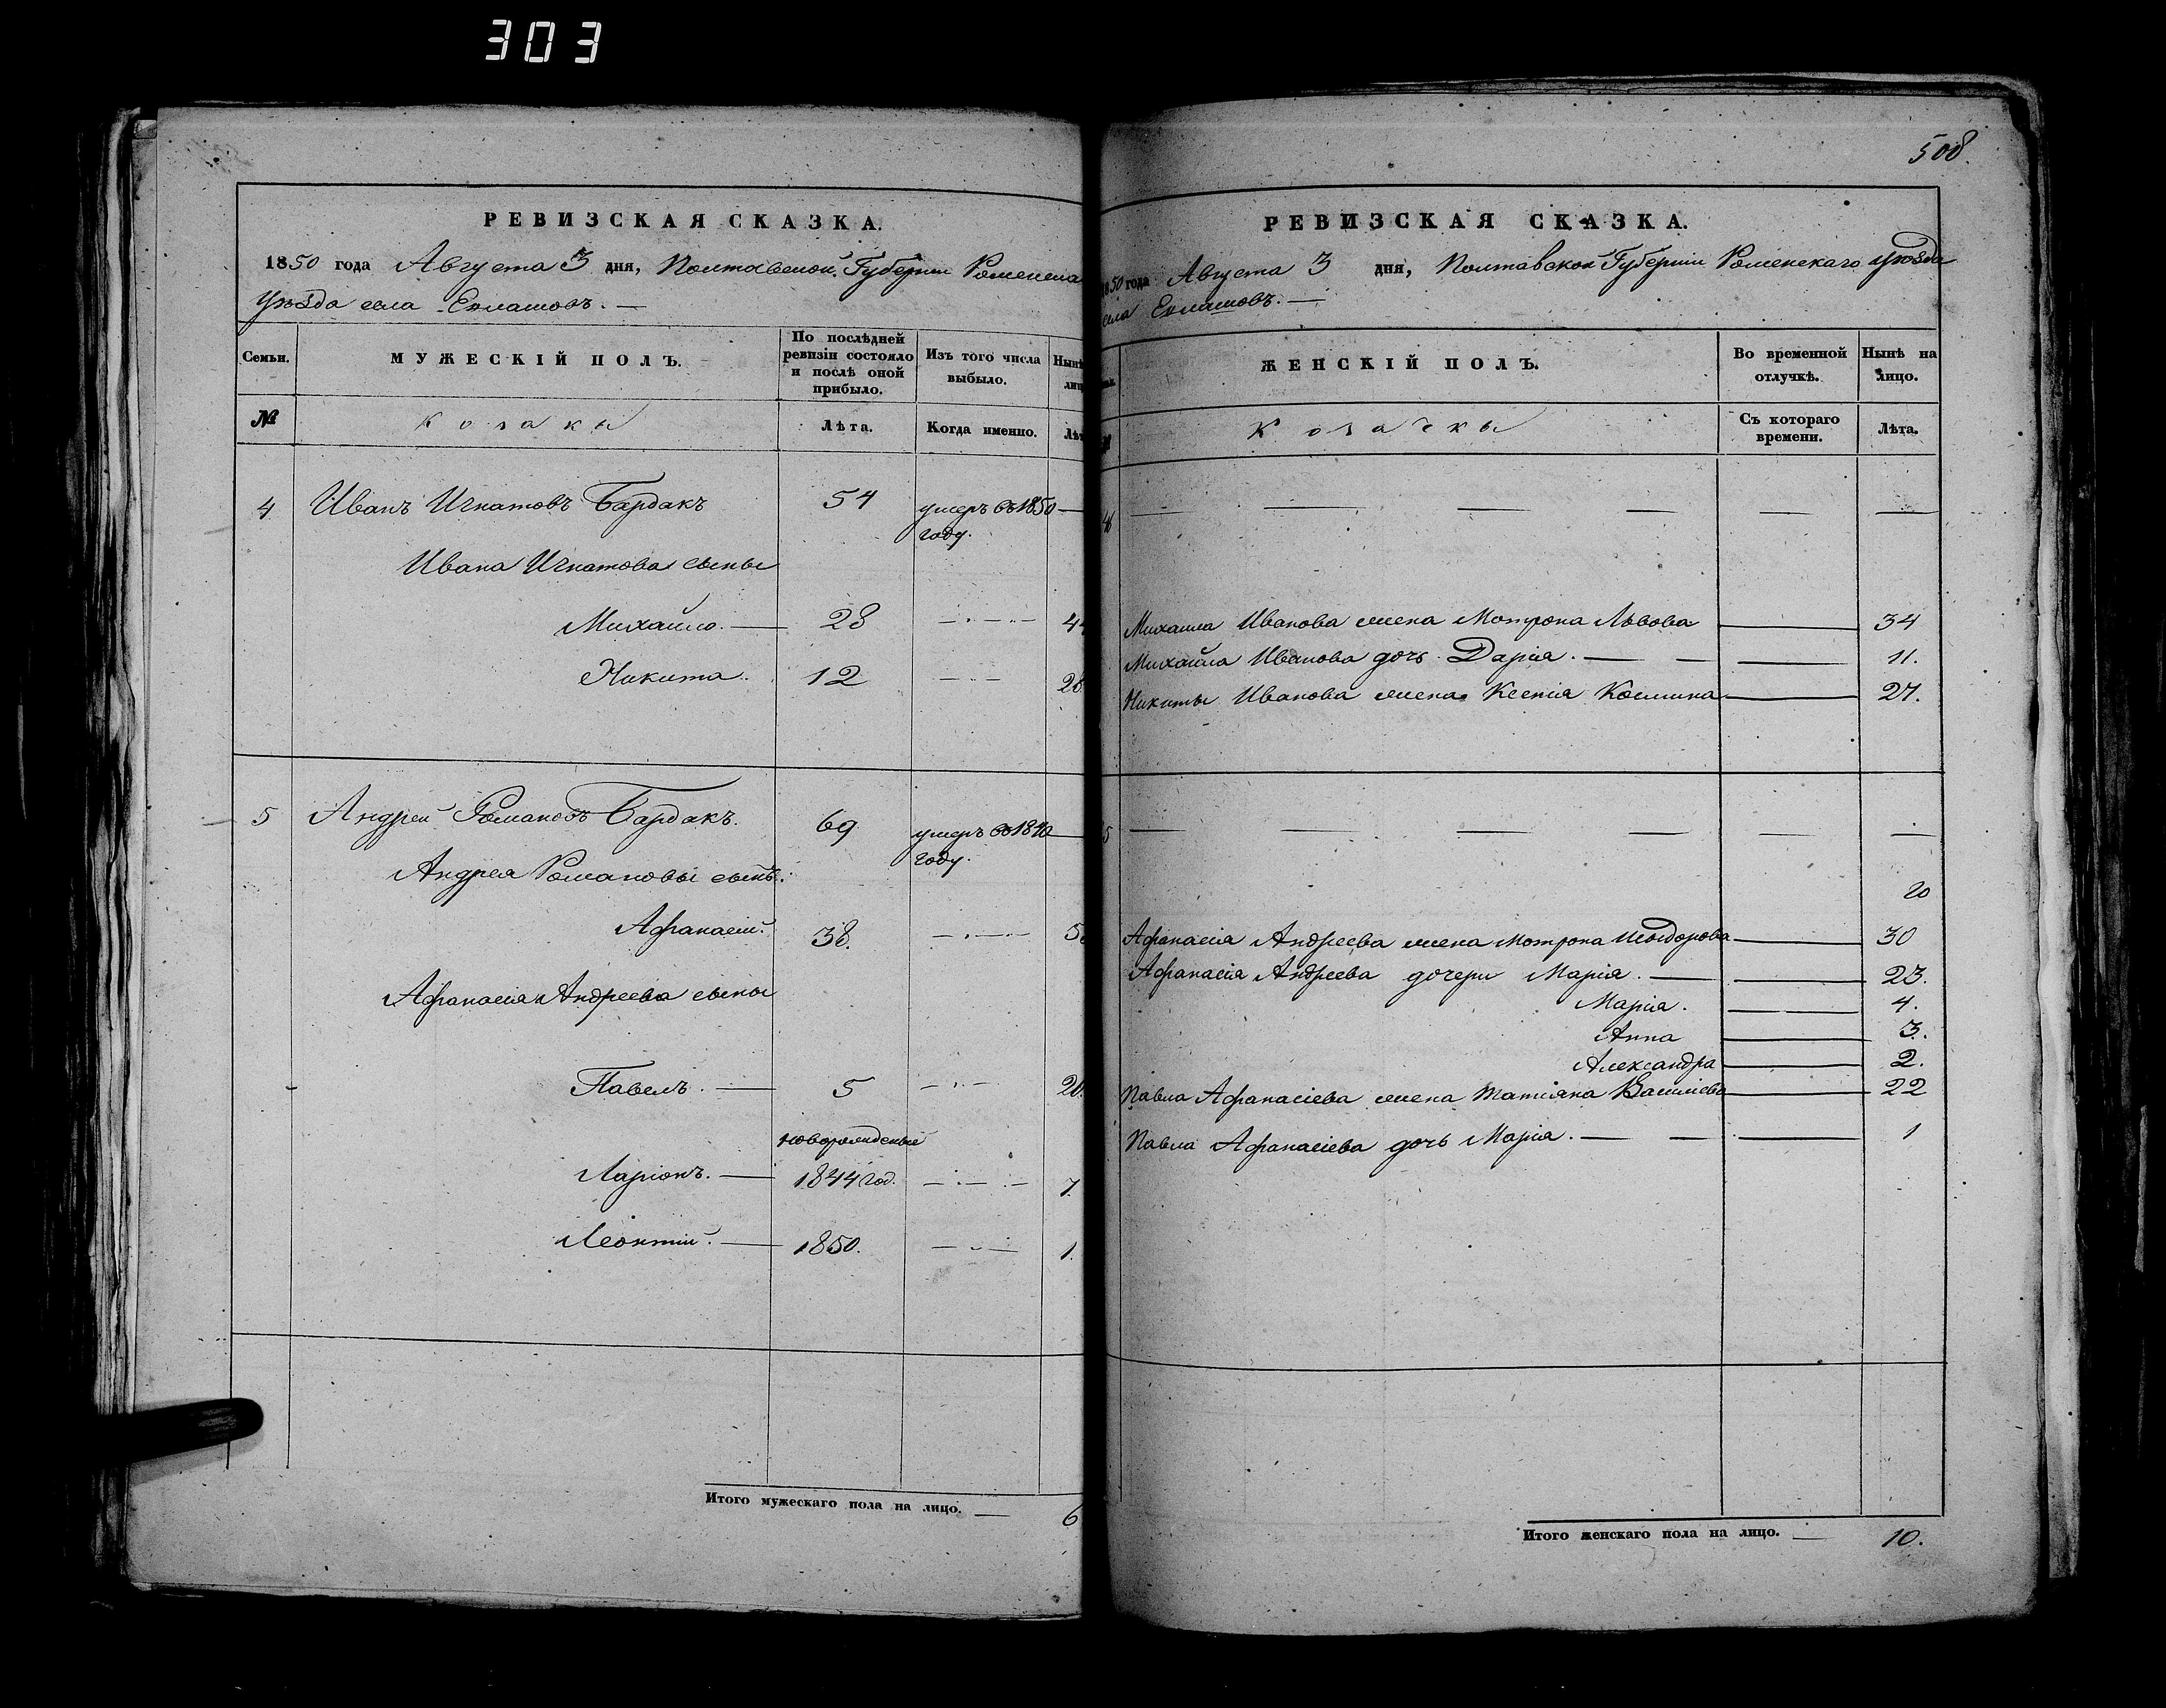 303
РЕВИЗСКАЯ СКАЗКА.
1850 года Августа 3 дня, Полтавской Губернии Роменска
Уѣзда села
Семьи.
МУЖЕСКІЙ ПОЛЪ.
По послѣдней ревизіи состояло и послѣ оной прибыло.
Изъ того числа выбыло.
Нынѣ
лиц
№
Козаки
Лѣта.
Когда именно.
Лѣт
4 Иванъ Игнатовъ Бардакъ 54 умеръ въ 1850 —
году.
Ивана Игнатова сыны
Михайло. — 28 44
Никита. 12 28.
5 Андрей Романовъ Бардакъ. 69 умеръ въ —
году.
Андрея Романовы сынъ.
Афанасій. 38. 5
Афанасія Андреева сыны
Павелъ. — 5 20.
новорожденные
Ларіонъ. — 1844 год. 7.
Леонтій. — 1850. 1.
Итого мужескаго пола на лицо. — 6
508.
РЕВИЗСКАЯ СКАЗКА.
1850 года Августа 3 дня, Полтавской Губерніи Роменскаго уѣзда
села
ЖЕНСКІЙ ПОЛЪ.
Во временной отлучкѣ.
Нынѣ на лицо.
Козачки
Съ котораго времени.
Лѣта.
4
Михаила Иванова жена Мотрона Львова — 34
Михайла Иванова дочь Дарія. — 11.
Никиты Иванова жена Ксенія Космина — 27.
5
20
Афанасія Андреева жена Мотрона — 30
Афанасія Андреева дочери Марія. — 23.
Марія. — 4.
Анна — 3.
Александра — 2.
Павла Афанасіева жена Татіана Василіева — 22
Павла Афанасіева дочь Марія. — 1
Итого женскаго пола на лицо. — 10.